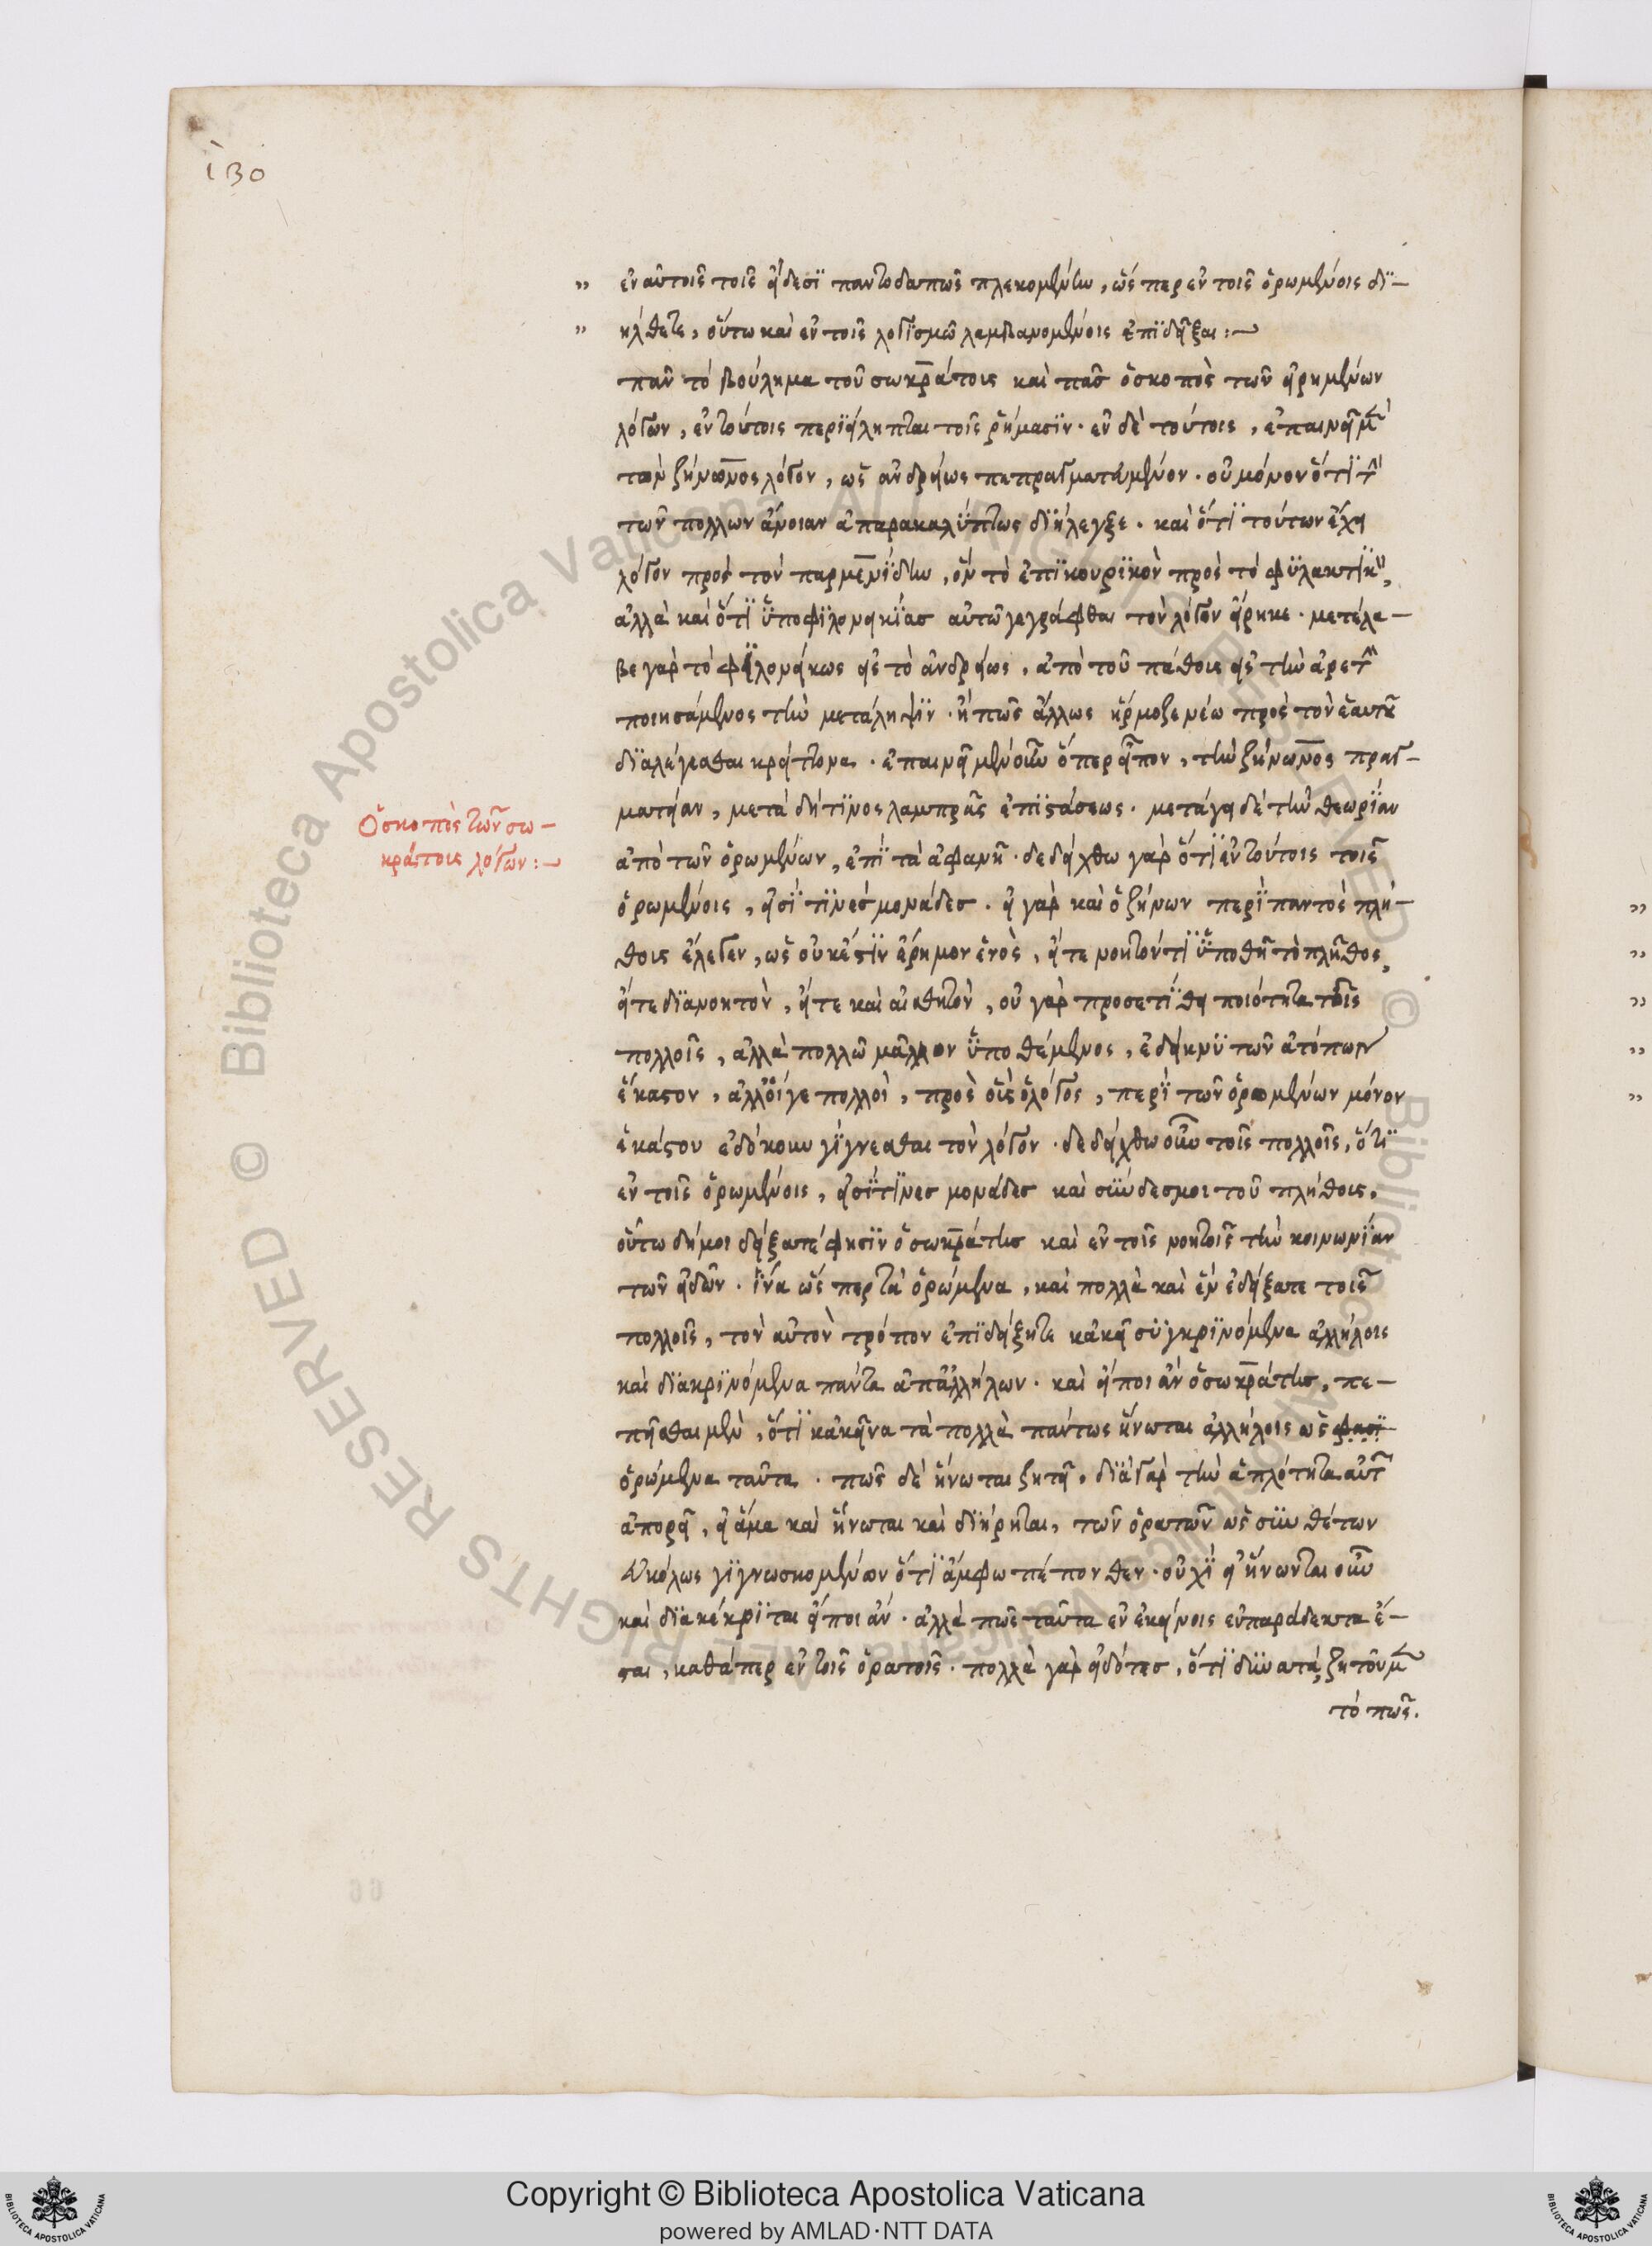 130
" ἐν αὐτοῖς τοῖς εἴδεσι παντοδαπῶς πλεκομένην, ὥσπερ ἐν τοῖς ὁρωμένοις δι-
" ήλθετε, οὕτω καὶ ἐν τοῖς λογισμῷ λαμβανομένοις ἐπιδεῖξαι :~
πᾶν τὸ βούλημα τοῦ σωκράτους καὶ πᾶς ὁ σκοπὸς τῶν εἰρημένων
λόγων, ἐν τούτοις περιείληπται τοῖς ῥήμασιν. ἐν δὲ τούτοις, ἐπαινεῖ μὲν
τὸν ζήνωνος λόγον, ὡς ἀνδρείως πεπραγματευμένον. οὐ μόνον ὅτι τὴν
τῶν πολλῶν ἄνοιαν ἀπαρακαλύπτως διήλεγξε. καὶ ὅτι τούτων ἔχει
λόγον πρὸς τὸν παρμενίδην, ὃν τὸ ἐπικουρικὸν πρὸς τὸ φυλακτικὸν,
ἀλλὰ καὶ ὅτι ὑπὸ φιλονεικίας αὐτῷ γεγράφθαι τὸν λόγον εἴρηκε. μετέλα-
βε γὰρ τὸ φιλονείκως εἰς τὸ ἀνδρείως, ἀπὸ τοῦ πάθους εἰς τὴν ἀρετὴν
ποιησάμενος τὴν μετάληψιν. ἢ πῶς ἄλλως ἥρμοζε νέῳ πρὸς τὸν ἑαυτοῦ
διαλέγεσθαι κρείττονα. ἐπαινεῖ μὲν οὖν ὅπερ εἶπον, τὴν ζήνωνος πραγ-
ματείαν, μετὰ δή τινος λαμπρᾶς ἐπιστάσεως. μετάγει δὲ τὴν θεωρίαν
Ὁ σκοπὸς τῶν σω-
κράτους λόγων :~
ἀπὸ τῶν ὁρωμένων, ἐπὶ τὰ ἀφανῆ. δεδείχθω γὰρ ὅτι ἐν τούτοις τοῖς
ὁρωμένοις, εἰσί τινες μονάδες. εἰ γὰρ καὶ ὁ ζήνων περὶ παντὸς πλή-
θους ἔλεγεν, ὡς οὐκ ἔστιν ἔρημον ἑνὸς, εἴτε νοητόν τι ὑποθῇ τὸ πλῆθος,
εἴτε διανοητὸν, εἴτε καὶ αἰσθητὸν, οὐ γὰρ προσετίθει ποιότητα τοῖς
πολλοῖς, ἀλλὰ πολλῷ μᾶλλον ὑποθέμενος, ἐδείκνυ τῶν ἀτόπων
ἕκαστον, ἀλλ' οἵγε πολλοὶ, πρὸς οὓς ὁ λόγος, περὶ τῶν ὁρωμένων μόνον
ἑκάστου ἐδόκουν γίγνεσθαι τὸν λόγον. δεδείχθω οὖν τοῖς πολλοῖς, ὅτι
ἐν τοῖς ὁρωμένοις, εἰσί τινες μονάδες καὶ σύνδεσμοι τοῦ πλήθους,
οὕτω δή μοι δείξατέ φησιν ὁ σωκράτης καὶ ἐν τοῖς νοητοῖς τὴν κοινωνίαν
τῶν εἰδῶν. ἵνα ὥσπερ τὰ ὁρώμενα, καὶ πολλὰ καὶ ἓν ἐδείξατε τοῖς
πολλοῖς, τὸν αὐτὸν τρόπον ἐπιδείξητε κἀκεῖ συγκρινόμενα ἀλλήλοις
καὶ διακρινόμενα πάντα ἀπ' ἀλλήλων. καὶ εἴποι ἂν ὁ σωκράτης, πε-
πεῖσθαι μὲν, ὅτι κἀκεῖνα τὰ πολλὰ πάντως ἥνωται ἀλλήλοις ὡς φασὶ
ὁρώμενα ταῦτα. πῶς δὲ ἥνωται ζητεῖ, διὰ γὰρ τὴν ἁπλότητα αὐτῶν
ἀπορεῖ, εἰ ἅμα καὶ ἥνωται καὶ διῄρηται, τῶν ὁρατῶν ὡς συνθέτων
εὐκόλως γιγνωσκομένων ὅτι ἄμφω πέπονθεν. οὐχὶ εἰ ἥνωνται οὖν
καὶ διακέκριται εἴποι ἄν. ἀλλὰ πῶς ταῦτα ἐν ἐκείνοις εὐπαράδεκτα ἔ-
σται, καθάπερ ἐν τοῖς ὁρατοῖς. πολλὰ γὰρ εἰδότες, ὅτι δυνατά, ζητοῦμεν
τὸ πῶς.
© Biblioteca Apostolica Vaticana ALL RIGHTS RESERVED
Copyright © Biblioteca Apostolica Vaticana
powered by AMLAD·NTT DATA